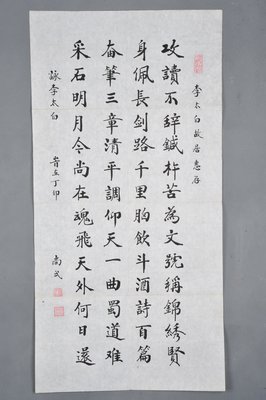 李太白故居惠存
攻讀不辞鍼杵苦為文號稱錦綉賢
身佩長劍路千里胸飲斗酒詩百篇
奋筆三章清平調仰天一曲蜀道难
采石明月今尚在魂飛天外何日還
詠李太白
昔在丁卯
尚民